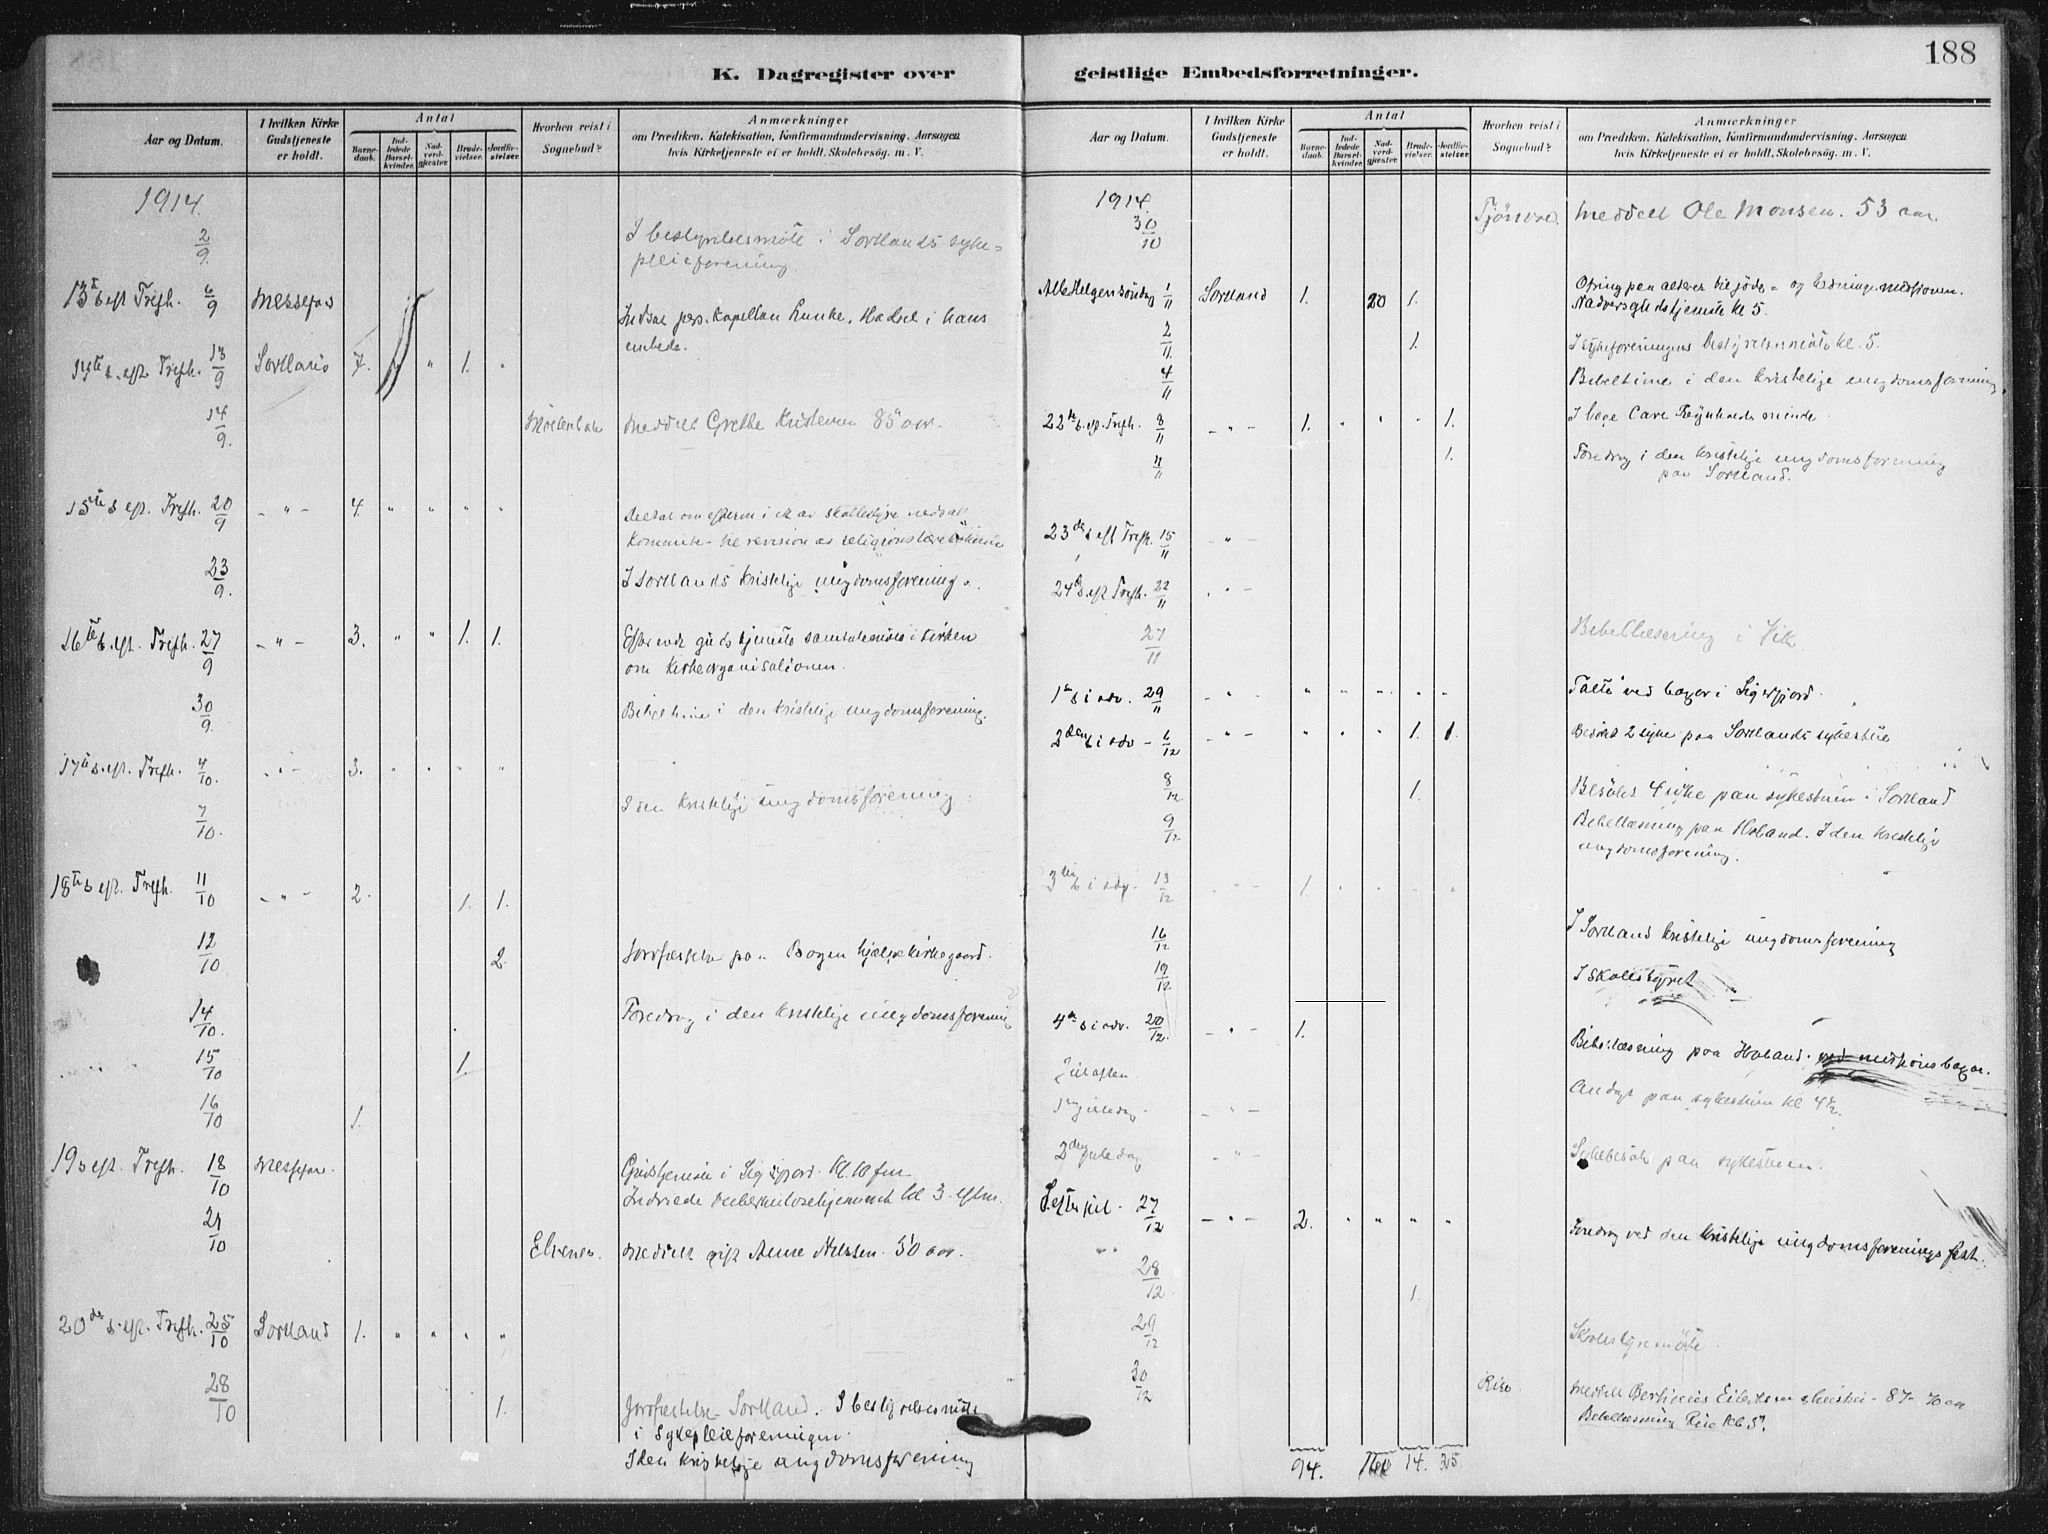 188
K. Dagregister over geistlige Embedsforretninger.
Aar og Datum.
I hvilken Kirke Gudstjeneste er holdt.
Antal
Barne-daab.
Ind-ledede Barsel-kvinder.
Nad-verd-gjester.
Brude-vielser.
Jordfæ-stelser.
Hvorhen reist i Sognebud?
Anmærkninger
om Prædiken, Katekisation, Konfirmandundervisning. Aarsagen
hvis Kirketjeneste ei er holdt, Skolebesög. m. V.
1914.
2/9. I bestyrelsesmøte i Sortlands syke=
pleieforening.
13de s. eft. Trefh. 6/9 Messefas
Indsat pers. kapellan Hadsel i hans
embede.
14de s. eft. Trefh. 13/9 Sortland 7. " 1. "
14/9. meddelt Grethe 85 aar.
15de s eft. Trefh. 20/9 - " - 4. " " " "
Deltat om efterm i et av skolestyre nedsat
Kommite til revision av religionslærebökerne
23/9. I Sortlands kristelige ungdomsforening.
16de s. eft. Trefh. 27/9 - " - 3. " " 1. 1. Efter endt gudstjeneste samtalemøte i kirken
om kirkeorganisationen.
30/9. Bibeltime i den kristelige ungdomsforening.
17de s. eft. Trefh. 4/10. - " - 3. " " " "
7/10. I den kristelige ungdomsforening.
18de s eft. Trefh. 11/10 - " - 2. 1. 1.
12/10 2. Jordfæstelse paa Bogen hjælpekirkegaard.
14/10. Foredrag i den kristelige ungdomsforening
15/10 1.
16/10 1.
19 s eft. Trefh. 18/10 Messefas. Gudstjeneste i Sigerfjord. Kl. 10 fm
Indviede tuberkulosehjemmet kl 3 eftm.
21/10 Elvenes. meddelt gift Anne Nilssen. 50 aar.
20de s. eft. Trefh. 25/10 Sortland 1. " " " "
28/10 1. Jordfæstelse Sortland. I bestyrelsesmöte
i Sykepleieforeningen.
I den kristelige ungdomsforening
Aar og Datum.
I hvilken Kirke Gudstjeneste er holdt.
Antal
Barne-daab.
Ind-ledede Barsel-kvinder.
Nad-verd-gjester.
Brude-vielser.
Jordfæ-stelser.
Hvorhen reist i Sognebud?
Anmærkninger
om Prædiken, Katekisation, Konfirmandundervisning. Aarsagen
hvis Kirketjeneste ei er holdt, Skolebesög. m. V.
1914.
30/10 meddelt Ole Monsen. 53 aar.
Allehelgensöndag 1/11 Sortland 1. 20 1. Ofring paa alteret til jöde- og hedningemissionen.
Nadversgudstjeneste kl 5.
2/11. 1. I sykeforeningens bestyrelsesmöte kl. 5.
4/11 Bibeltime i den kristelige ungdomsforening.
22de s. ef. Trefh. 8/11 - " - 1. " " " 1. I loge minde.
11/11 1. Foredrag i den kristelige ungdomsforening
paa Sortland.
23de s eft Trefh. 15/11 - " -
24de s. eft Trefh. 22/11 - " -
27/11 Bibellæsning i Vik
1ste s i adv. 29/11 - " - " " " " " Talte ved bazar i Sigerfjord.
2den s i adv - 6/12 - " - " " " 1. 1. Besökt 2 syke paa Sortlands sykestue
8/12. 1. Besökt 4 syke paa sykestuen i Sortland
9/12 Bibellæsning paa Holand. I den kristelige
ungdomsforening.
3die s i adv. 13/12 - " - 1. " " " "
16/12 I Sortland kristelige ungdomsforening
19/12 I skolestyret
4de s i adv. 20/12. - " - 1.
Bibellæsning paa Holand. ved missionsbazar.
Juleaften. Andagt paa sykestuen kl 4½.
1ste juledag. - " -
2den juledag - " - Sykebesök paa sykestuen.
S. efter jul. 27/12 - " - 2. " " " " Foredrag ved den kristelige ungdomsforenings fest.
28/12 1.
29/12 Skolestyremöte.
30/12 Rise. meddelt
Bibellæsning Rise kl. 5.
94. 14. 35.